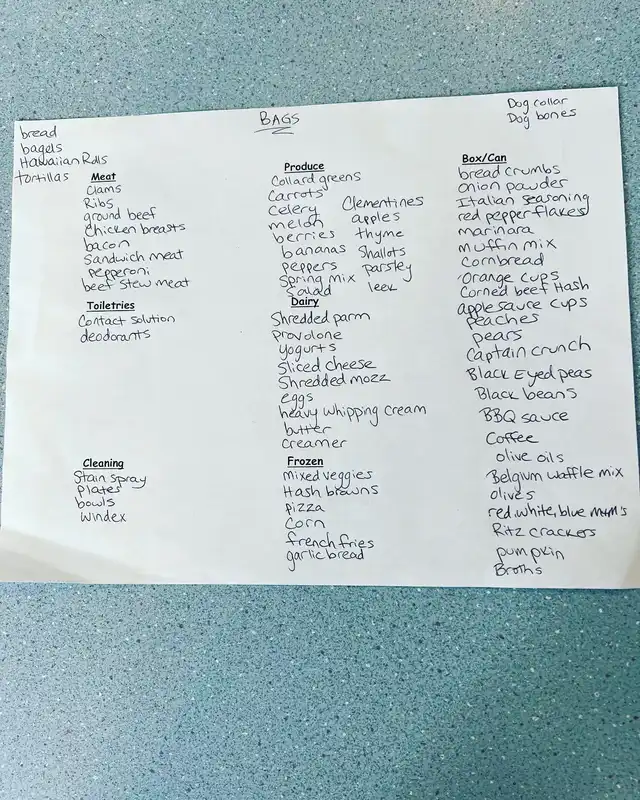 BAGS
Dog collar
Dog bones
bread
bagels
Hawaiian Rolls
tortillas
Meat
Clams
Ribs
ground beef
Chicken breasts
bacon
Sandwich meat
pepperoni
beef stew meat
Toiletries
Contact solution
deodorants
Cleaning
Stain spray
plates
bowls
windex
Produce
Collard greens
Carrots
Celery
melon
berries
bananas
peppers
Spring mix
Salad
Clementines
apples
thyme
Shallots
parsley
leek
Dairy
Shredded parm
provolone
yogurts
Sliced cheese
Shredded mozz
eggs
heavy whipping cream
butter
creamer
Frozen
mixed veggies
Hash browns
pizza
corn
french fries
garlic bread
Box/Can
bread crumbs
onion powder
Italian seasoning
red pepper flakes
marinara
muffin mix
Cornbread
Orange cups
Corned beef Hash
applesauce cups
peaches
pears
Captain crunch
Black Eyed peas
Black beans
BBQ sauce
Coffee
olive oils
Belgium waffle mix
olives
red, white, blue m&m's
Ritz crackers
pumpkin
Broths